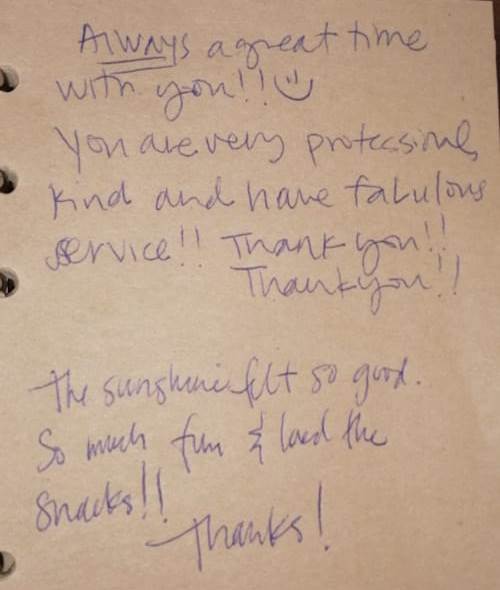 Always a great time
with you!! :)
You are very professional,
kind and have fabulous
service!! Thank you!!
Thank you!!
The sunshine felt so good.
So much fun & loved the
snacks!!
Thanks!